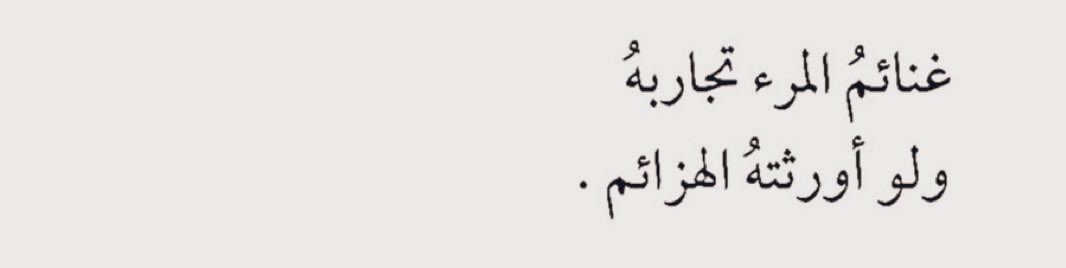 غنائمُ المرء تجاربهُ
ولو أورثتهُ الهزائم .